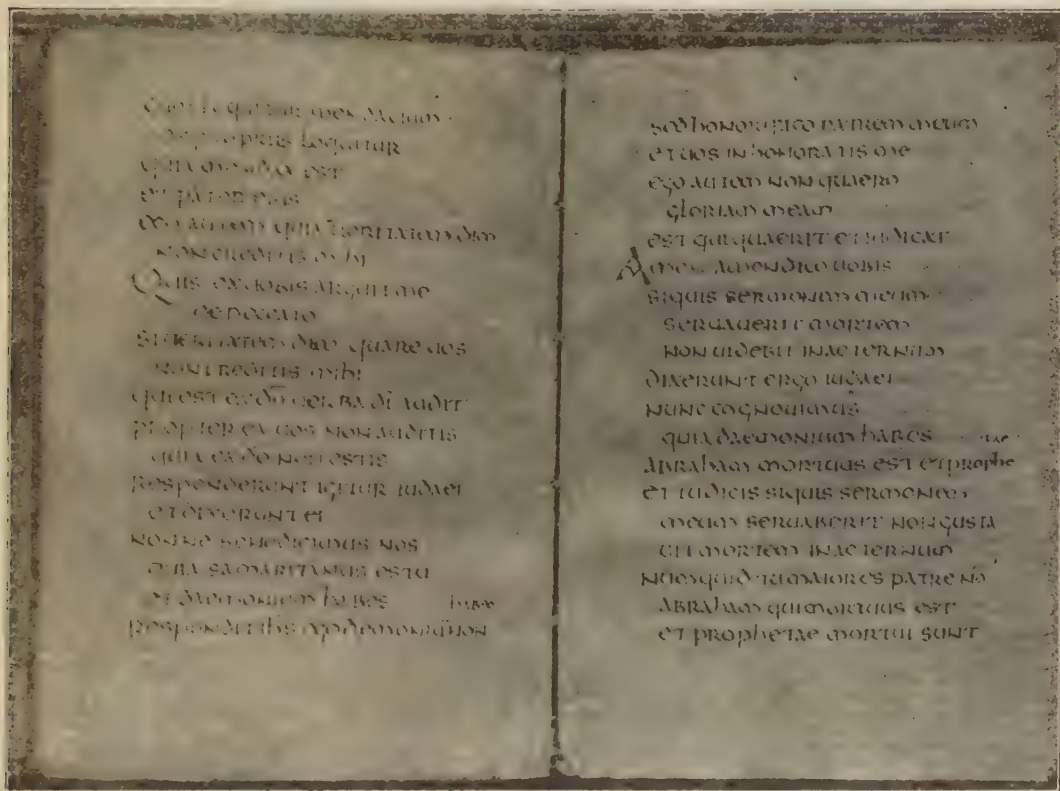 loquitur mendacium
ex propriis loquitur
quia mendax est
et pater eius
ego autem quia ueritatem dico
non creditis mihi
Quis ex uobis arguit me
de peccato
si ueritatem dico quare uos
non creditis mihi
qui est ex dō uerba dī audit
propter ea uos non auditis
quia ex dō non estis
responderunt igitur iudaei
et dixerunt ei
nonne benedicimus nos
quia samaritanus es tu
et daemonium habes habeo
respondit ihs ego demonium non
sed honorifico patrem meum
et uos inhonoratis me
ego autem non quaero
gloriam meam
est qui quaerit et iudicat
Amen amen dico uobis
siquis sermonem meum
seruauerit mortem
non uidebit in aeternum
dixerunt ergo iudaei
nunc cognouimus
quia daemonium habes tae
Abraham mortuus est et prophe
et tu dicis siquis sermonem
meum seruaberit non gusta
uit mortem in aeternum
numquid tu maior es patre nō
Abraham qui mortuus est
et prophetae mortui sunt